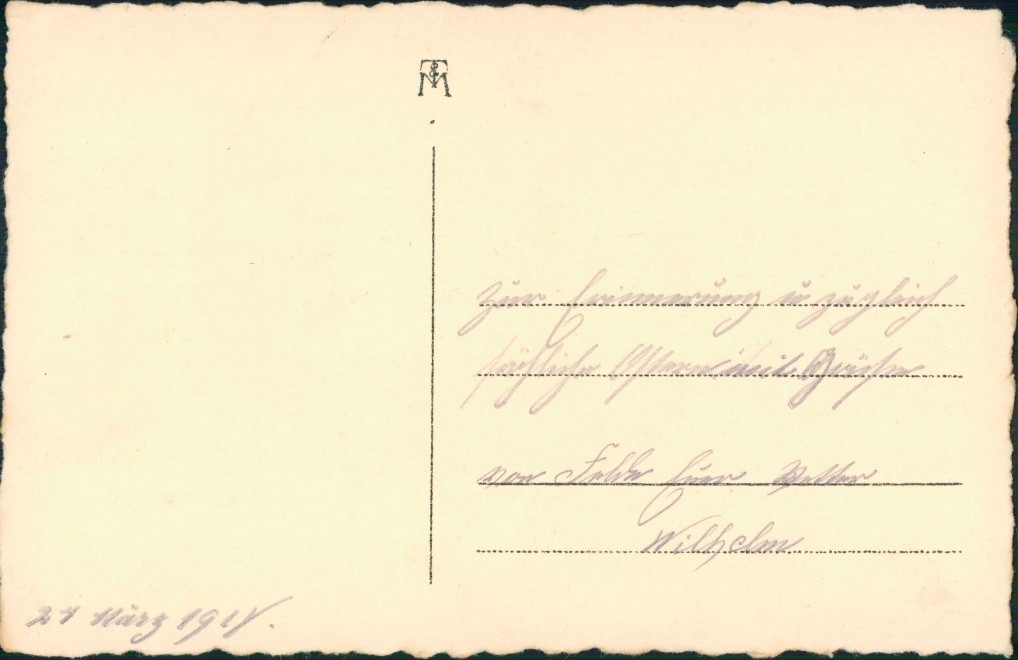 Zur Erinnerung u zugleich
fröhliche Ostern mit Grüßen
vom Felde Euer Vetter
Wilhelm
21 März 191